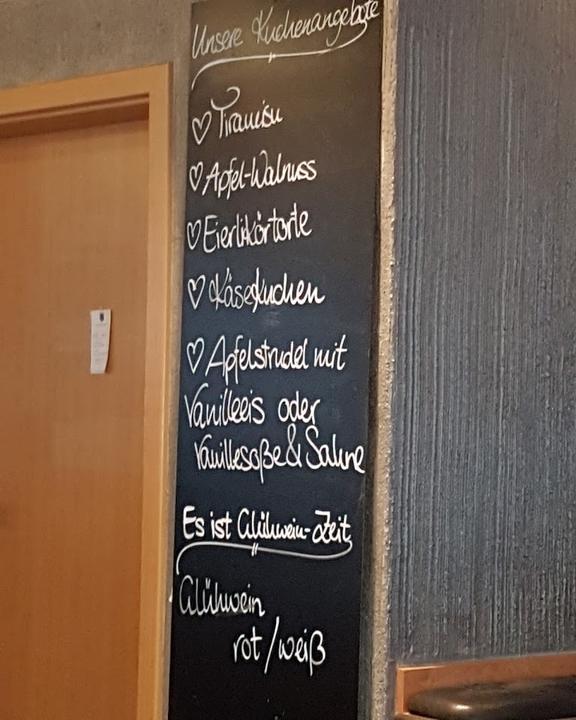 Unsere Kuchenangebote
♡ Tiramisu
♡ Apfel-Walnuss
♡ Eierlikörtorte
♡ Käsekuchen
♡ Apfelstrudel mit
Vanilleeis oder
Vanillesoße & Sahne
Es ist Glühwein-Zeit
Glühwein
rot / weiß